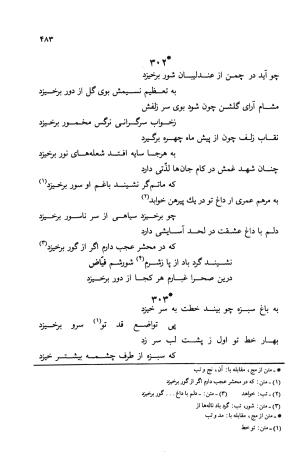 ۴۸۳
*۳۰۲
چو آید در چمن از عندلیبان شور برخیزد
به تعظیم نسیمش بوی گل از دور برخیزد
مشام آرای گلشن چون شود بوی سر زلفش
زخواب سرگرانی نرگس مخمور برخیزد
نقاب زلف چون از پیش ماه چهره برگیرد
به هرجا سایه افتد شعله‌های نور برخیزد
چنان شهد غمش در کام جان‌ها لذّتی دارد
که ماتم‌گر نشیند باغم او سور برخیزد(۱)
به مرهم عمری ار داغ تو در یك پیرهن خوابد(۲)
چو برخیزد سیاهی از سر ناسور برخیزد
دلم با داغ عشقت در لحد آسایشی دارد
که در محشر عجب دارم اگر از گور برخیزد(۳)
نشیند گرد باد از پا زشرم(۴) شورشم فیّاض
درین صحرا غبارم هر کجا از دور برخیزد
*۳۰۳
به باغ سبزه چو بیند خطت به سر خیزد
پی تواضع قد تو(۱) سرو برخیزد
بهار خط تو اول ز پشت لب سر زد
که سبزه از طرف چشمه بیشتر خیزد
* ـ متن از مج، مقابله با: آن، نج و تب
(۱) ـ متن: که در محشر عجب دارم اگر از گور برخیزد
(۲) ـ تب: خواهد (۳) ـ متن: ـ دلم با داغ ... گور برخیزد
(۴) ـ متن: شور، تب: گرد باد ناله‌ها از
* ـ متن از مج، مقابله با: مد و تب
(۱) ـ متن: تو خط